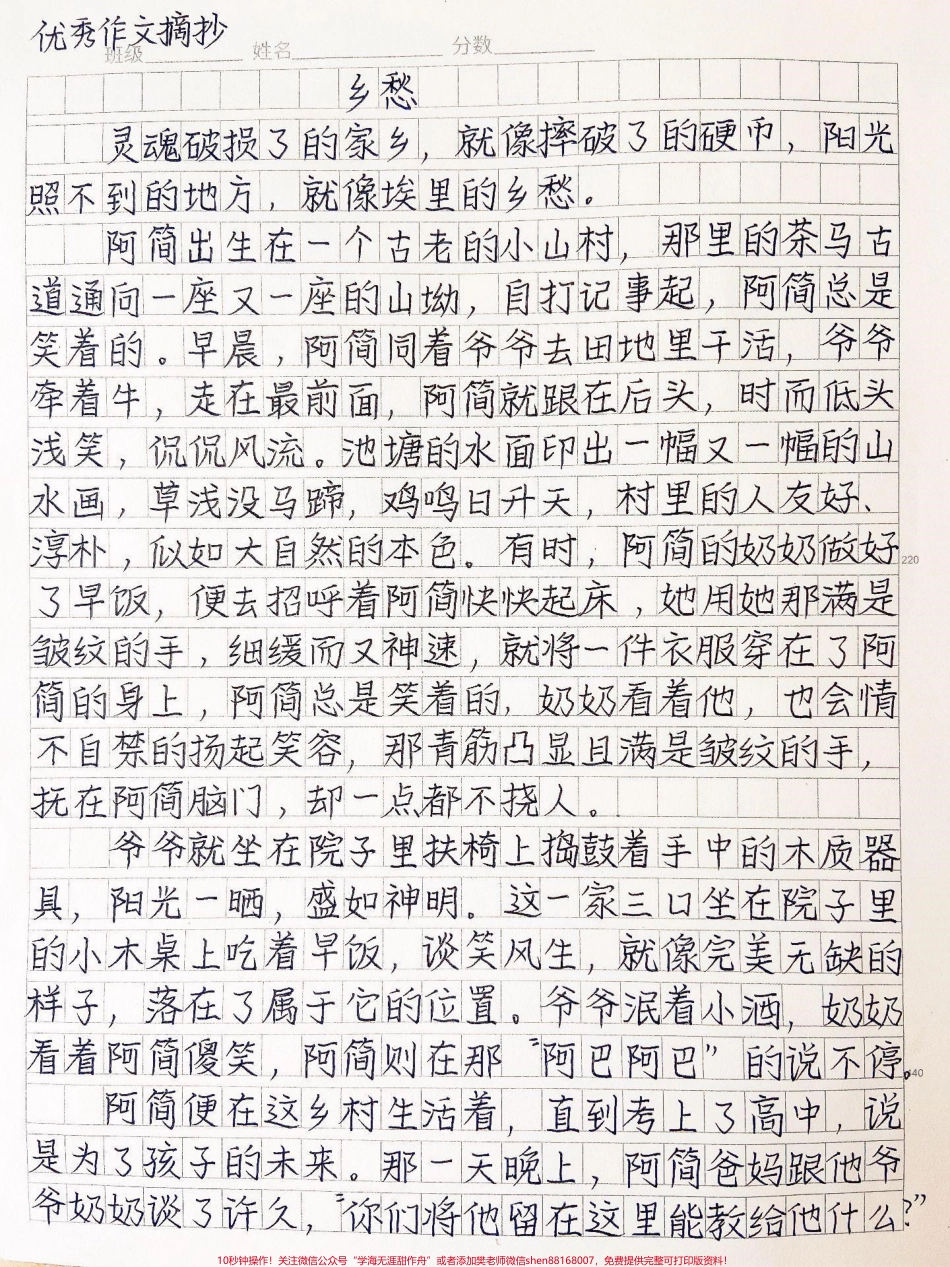 优秀作文摘抄
班级 姓名 分数
乡愁
灵魂破损了的家乡，就像摔破了的硬币，阳光
照不到的地方，就像埃里的乡愁。
阿简出生在一个古老的小山村，那里的茶马古
道通向一座又一座的山坳，自打记事起，阿简总是
笑着的。早晨，阿简同着爷爷去田地里干活，爷爷
牵着牛，走在最前面，阿简就跟在后头，时而低头
浅笑，侃侃风流。池塘的水面印出一幅又一幅的山
水画，草浅没马蹄，鸡鸣日升天，村里的人友好、
淳朴，似如大自然的本色。有时，阿简的奶奶做好
220
了早饭，便去招呼着阿简快快起床，她用她那满是
皱纹的手，细缓而又神速，就将一件衣服穿在了阿
简的身上，阿简总是笑着的，奶奶看着他，也会情
不自禁的扬起笑容，那青筋凸显且满是皱纹的手，
抚在阿简脑门，却一点都不挠人。
爷爷就坐在院子里扶椅上捣鼓着手中的木质器
具，阳光一晒，盛如神明。这一家三口坐在院子里
的小木桌上吃着早饭，谈笑风生，就像完美无缺的
样子，落在了属于它的位置。爷爷泯着小酒，奶奶
看着阿简傻笑，阿简则在那“阿巴阿巴”的说不停。
440
阿简便在这乡村生活着，直到考上了高中，说
是为了孩子的未来。那一天晚上，阿简爸妈跟他爷
爷奶奶谈了许久，“你们将他留在这里能教给他什么？”
10秒钟操作！关注微信公众号“学海无涯甜作舟”或者添加樊老师微信shen88168007，免费提供完整可打印版资料！